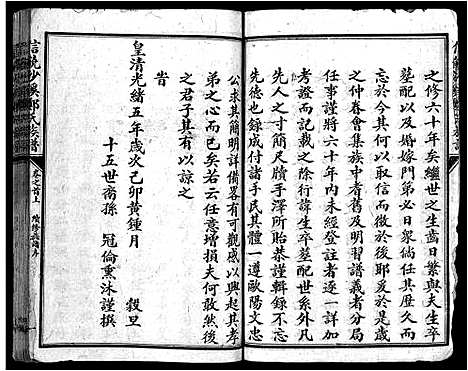 之修六十年矣繼世之生齒日繁與夫生卒
墓配以及婚嫁門第必日衆倘任其歷久而
於今其何以
之仲春會集族中耆舊及明習譜義者
任事謹將六十年內未經登註者逐一詳加
考證而記載之除行諱生卒墓配世系外凡
先人片言隻字手澤所貽恭謹輯錄不忘
先德也錄成付諸手民其體一遵歐陽文忠
公求其簡明詳備畧有可觀感以興其孝
弟之心而已矣若云任意增損夫何敢於後
之君子其有以諒之
旹
皇清光緒五年歲次己卯黃鍾月 穀旦
十五世裔孫 冠倫熏沐謹撰
卷之首上 續修族譜序
信饒沙溪鄭氏族譜